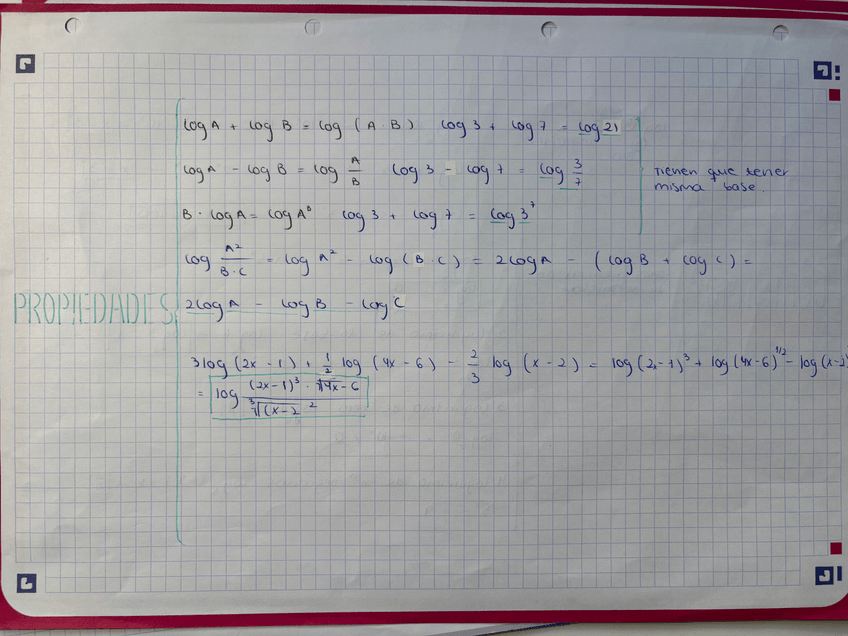 log A + log B = log (A · B) log 3 + log 7 = log 21
log A - log B = log A/B log 3 - log 7 = log 3/7
Tienen que tener
misma base.
B · log A = log Aᴮ log 3 + log 7 = log 3⁷
log A²/B·C = log A² - log (B · C) = 2 log A - (log B + log C) =
PROPIEDADES
2 log A - log B - log C
3 log (2x - 1) + 1/2 log (4x - 6) - 2/3 log (x - 2) = log (2x - 1)³ + log (4x - 6)^1/2 - log (x - 2)
= log (2x - 1)³ · √4x - 6 / ³√(x - 2 ²